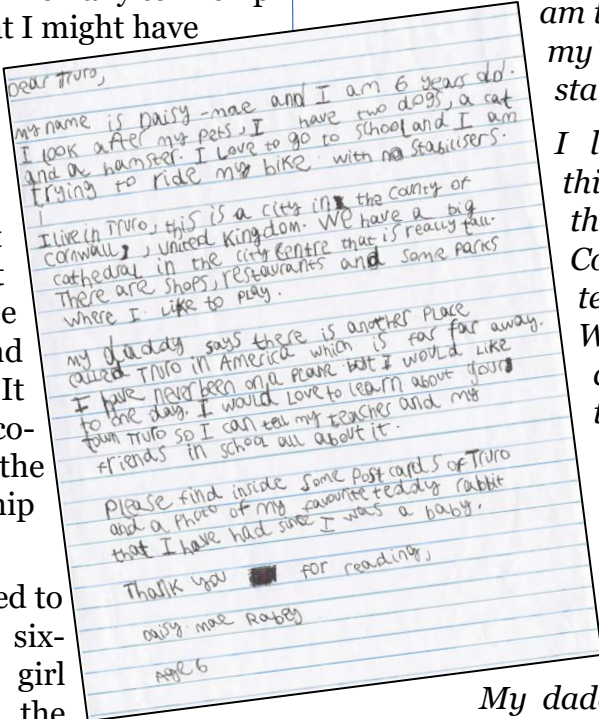 t I might have
am t
my
sta
I l
thi
th
Co
te
W
t
e
nd
It
co-
the
hip
ed to
six-
girl
the
Dear Truro,
my name is Daisy-mae and I am 6 years old.
I look after my pets, I have two dogs, a cat
and a hamster. I love to go to school and I am
trying to ride my bike with no stabilisers.
I live in Truro, this is a city in the county of
cornwall, united Kingdom. We have a big
cathedral in the city centre that is really tall.
There are shops, restaurants and some parks
where I like to play.
my daddy says there is another place
called Truro in America which is far far away.
I have never been on a plane but I would like
to one day. I would love to learn about your
town Truro so I can tell my teacher and my
friends in school all about it.
Please find inside some post cards of Truro
and a photo of my favourite teddy rabbit
that I have had since I was a baby.
Thank you for reading,
Daisy-mae Rabey
Age 6
My dad